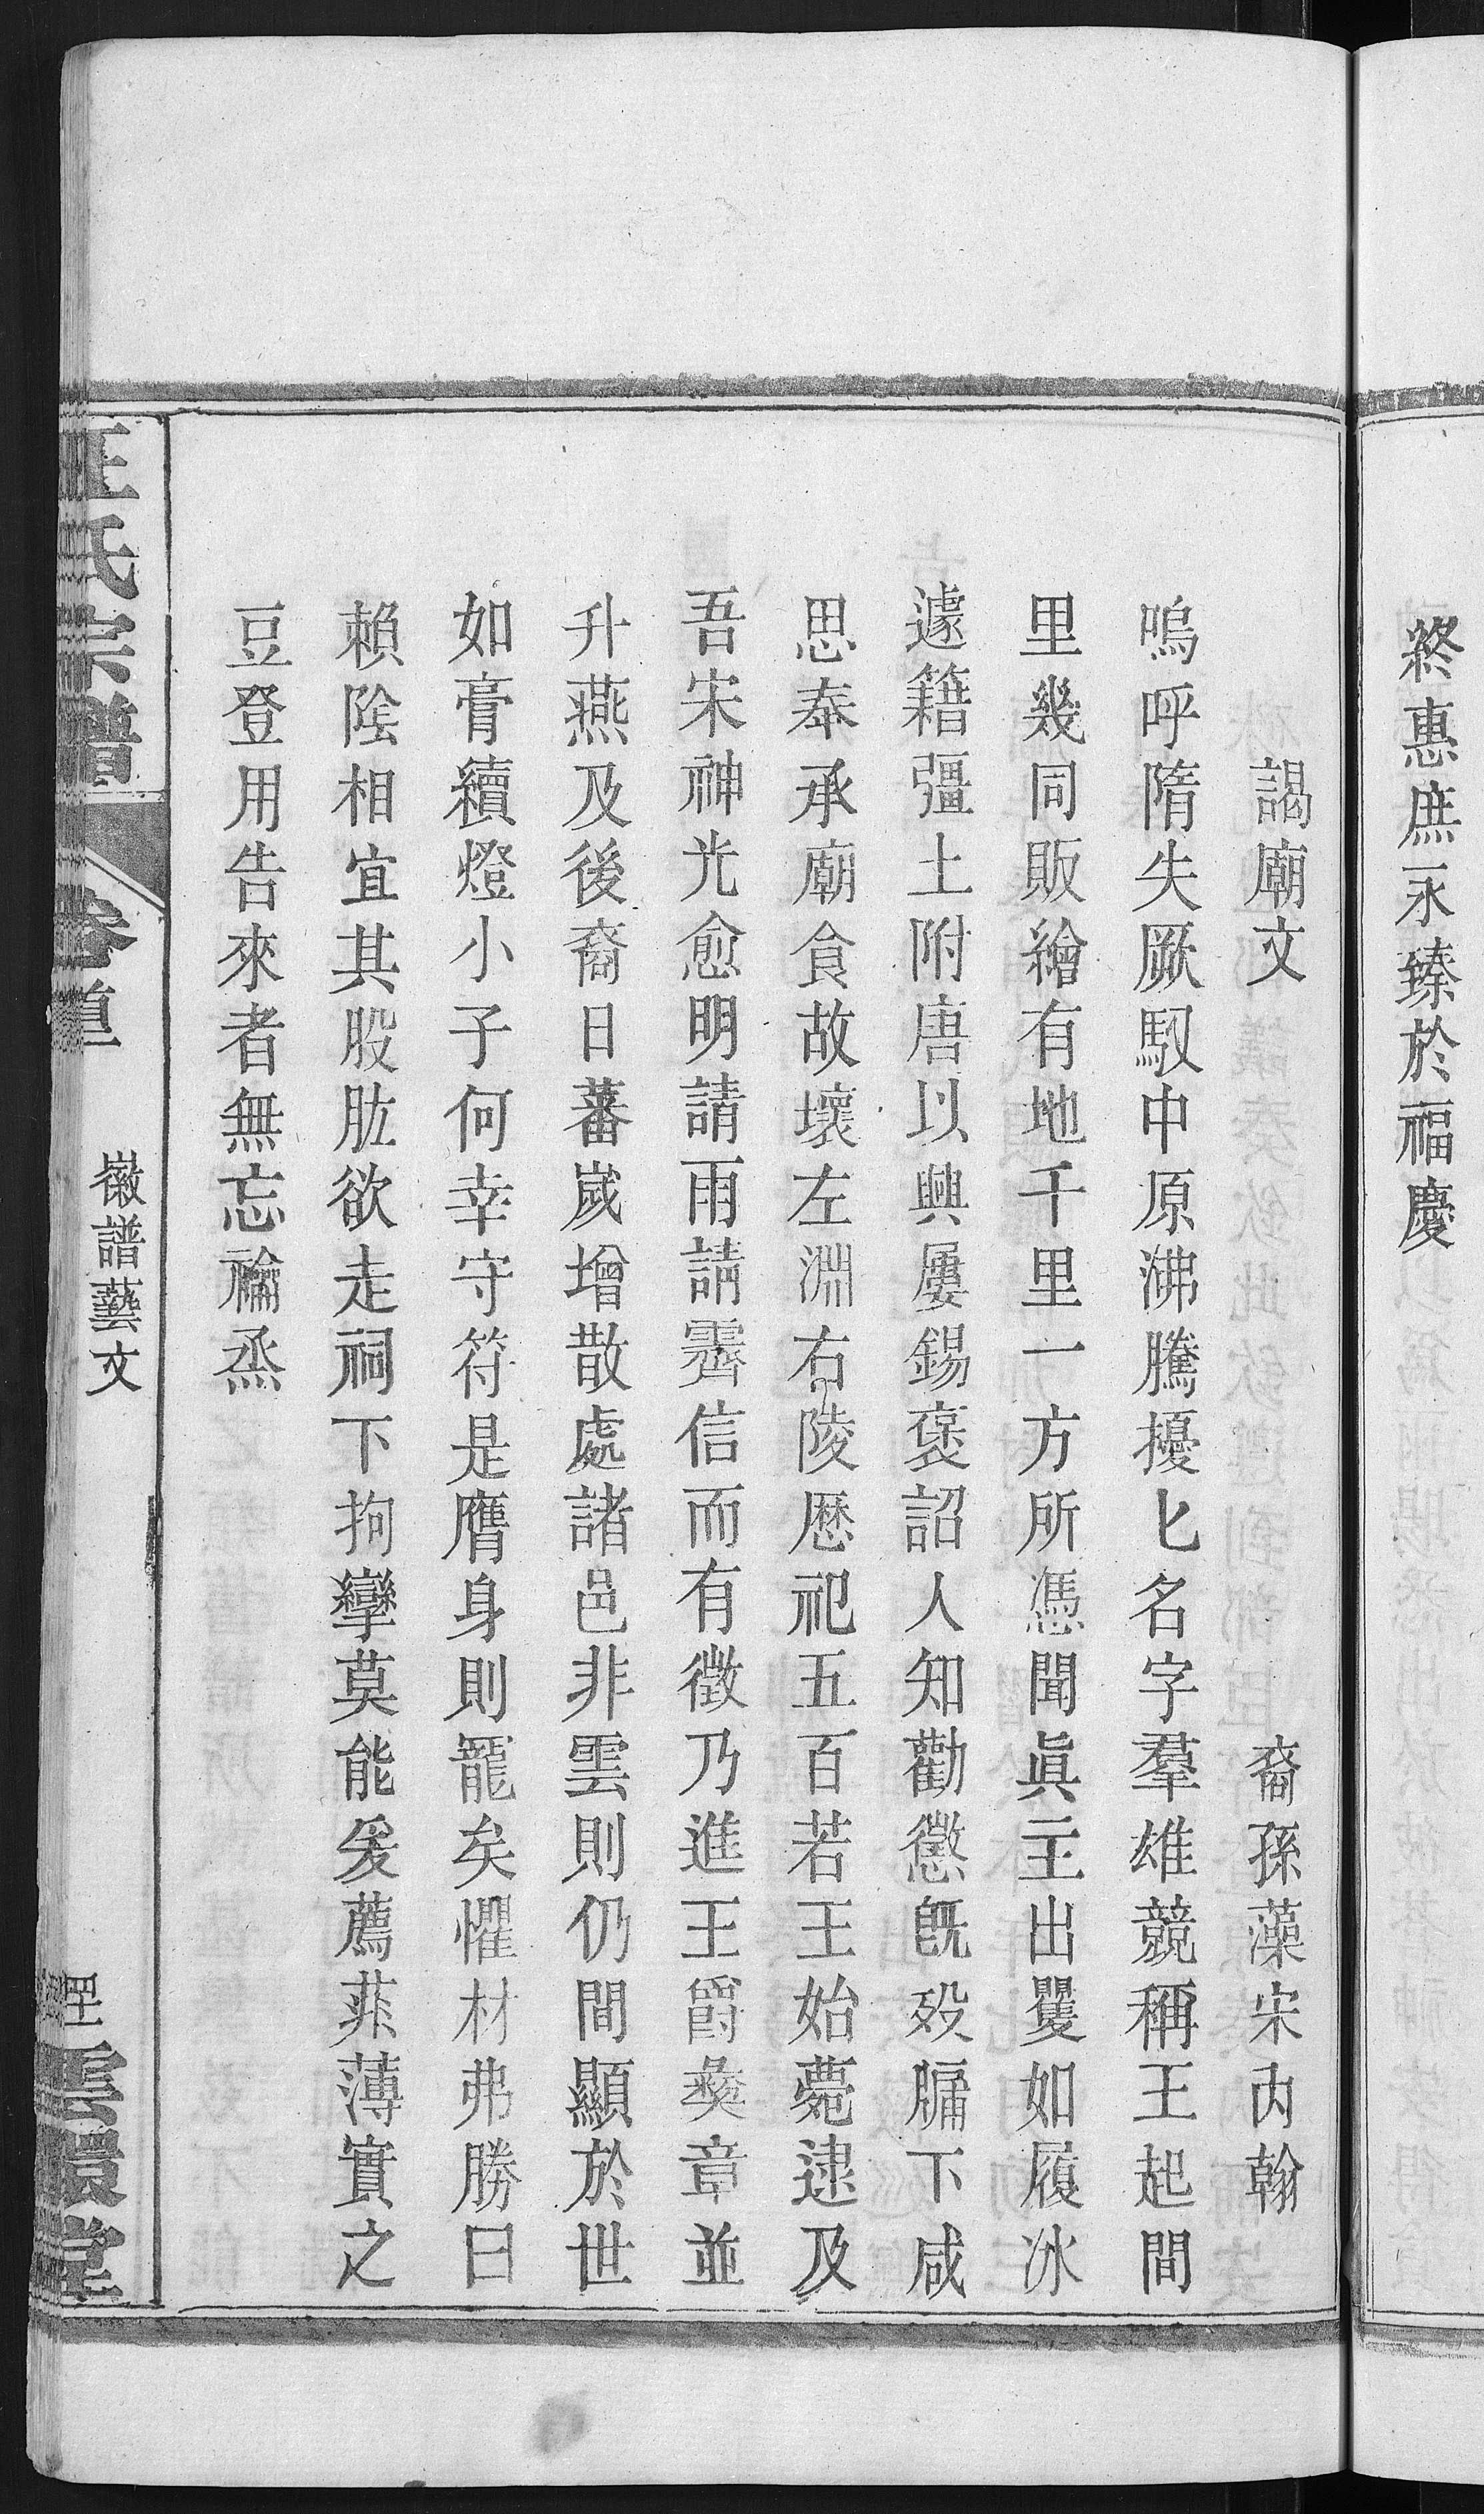 終惠庶永臻於福慶
謁廟文　裔孫藻宋內翰
嗚呼隋失厥馭中原沸騰擾匕名字羣雄競稱王起間
里幾同販繪有地千里一方所憑聞眞主出矍如履冰
遽籍彊土附唐以興屢錫褒詔人知勸懲旣歿牖下咸
思奉承廟食故壤左淵右陵厯祀五百若王始薨逮及
吾宋神光愈明請雨請霽信而有徵乃進王爵彝章並
升燕及後裔日蕃嵗增散處諸邑非雲則仍間顯於世
如膏續燈小子何幸守符是膺身則寵矣懼材弗勝曰
賴隂相宜其股肱欲走祠下拘攣莫能爰薦菲薄實之
豆登用告來者無忘禴烝
汪氏宗譜　卷首　徽譜藝文　雲環堂